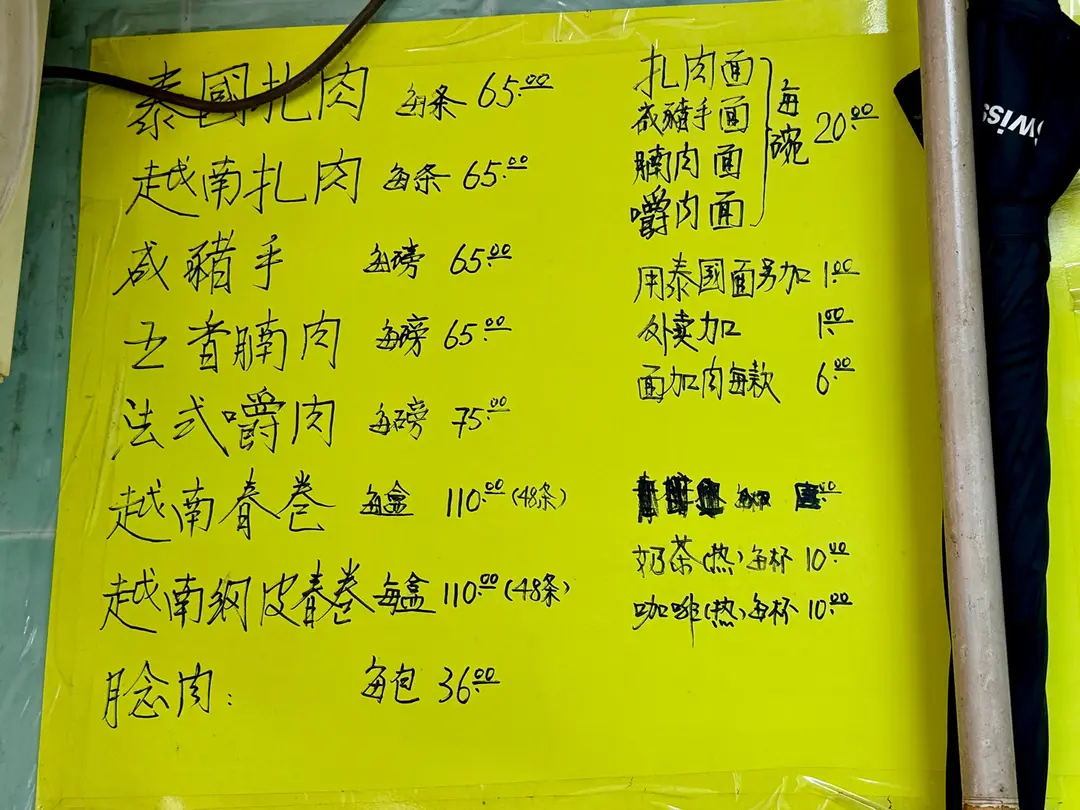 泰國扎肉 每条 65.00
越南扎肉 每条 65.00
咸豬手 每磅 65.00
五香腩肉 每磅 65.00
法式嚼肉 每磅 75.00
越南春卷 每盒 110.00 (48条)
越南網皮春卷 每盒 110.00 (48条)
腍肉: 每包 36.00
扎肉面
咸豬手面
腩肉面
嚼肉面
每碗 20.00
用泰国面另加 1.00
外卖加 1.00
面加肉每款 6.00
奶茶(热)每杯 10.00
咖啡(热)每杯 10.00
wiss